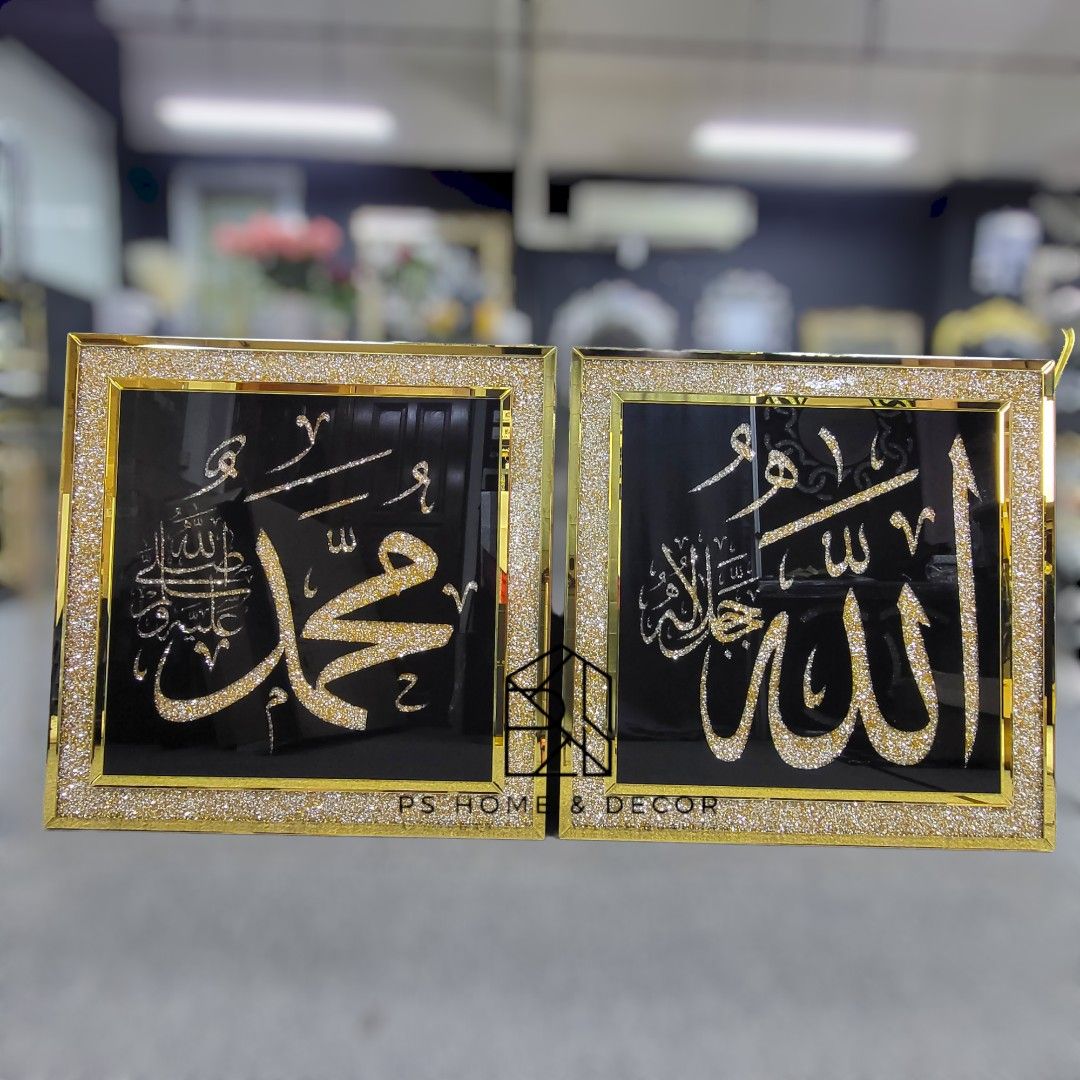 الله
جل جلاله
محمد
صلى الله عليه وسلم
PS HOME & DECOR